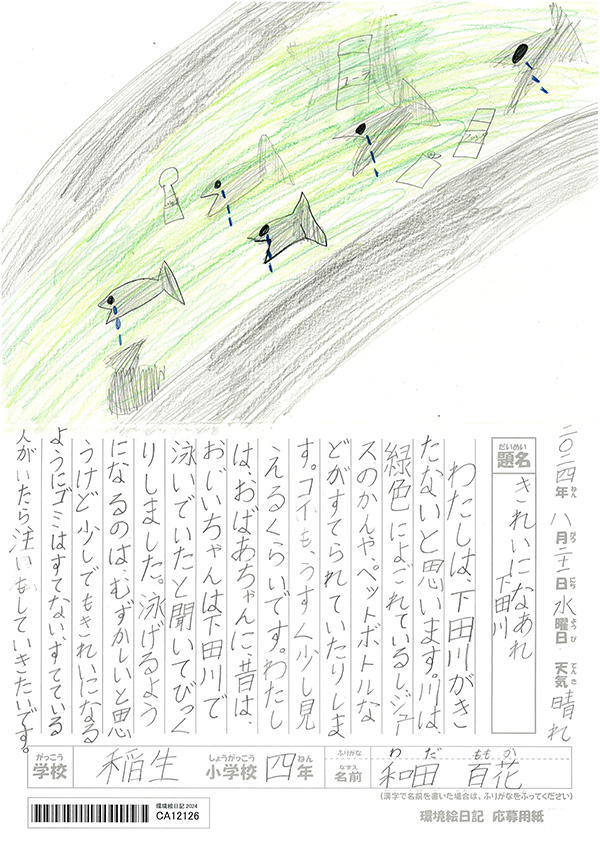 コーラ
二〇二四年 八月二十一日 水曜日 天気 晴れ
ねん がつ にち ようび てんき
だいめい
題名
きれいになあれ
下田川
わたしは、下田川がき
たないと思います。川は、
緑色によごれているしジュー
スのかんや、ペットボトルな
どがすてられていたりしま
す。コイも、うすく少し見
えるくらいです。わたし
は、おばあちゃんに、昔は、
おじいちゃんは下田川で
泳いでいたと聞いてびっく
りしました。泳げるよう
になるのはむずかしいと思
うけど少しでもきれいになる
ようにゴミはすてない、すてている
人がいたら、注いもしていきたいです。
がっこう しょうがっこう ねん ふりがな わだ ももか
学校 稲生 小学校 四年 なまえ 名前 和田 百花
(漢字で名前を書いた場合は、ふりがなをふってください)
環境絵日記 2024
CA12126
環境絵日記 応募用紙